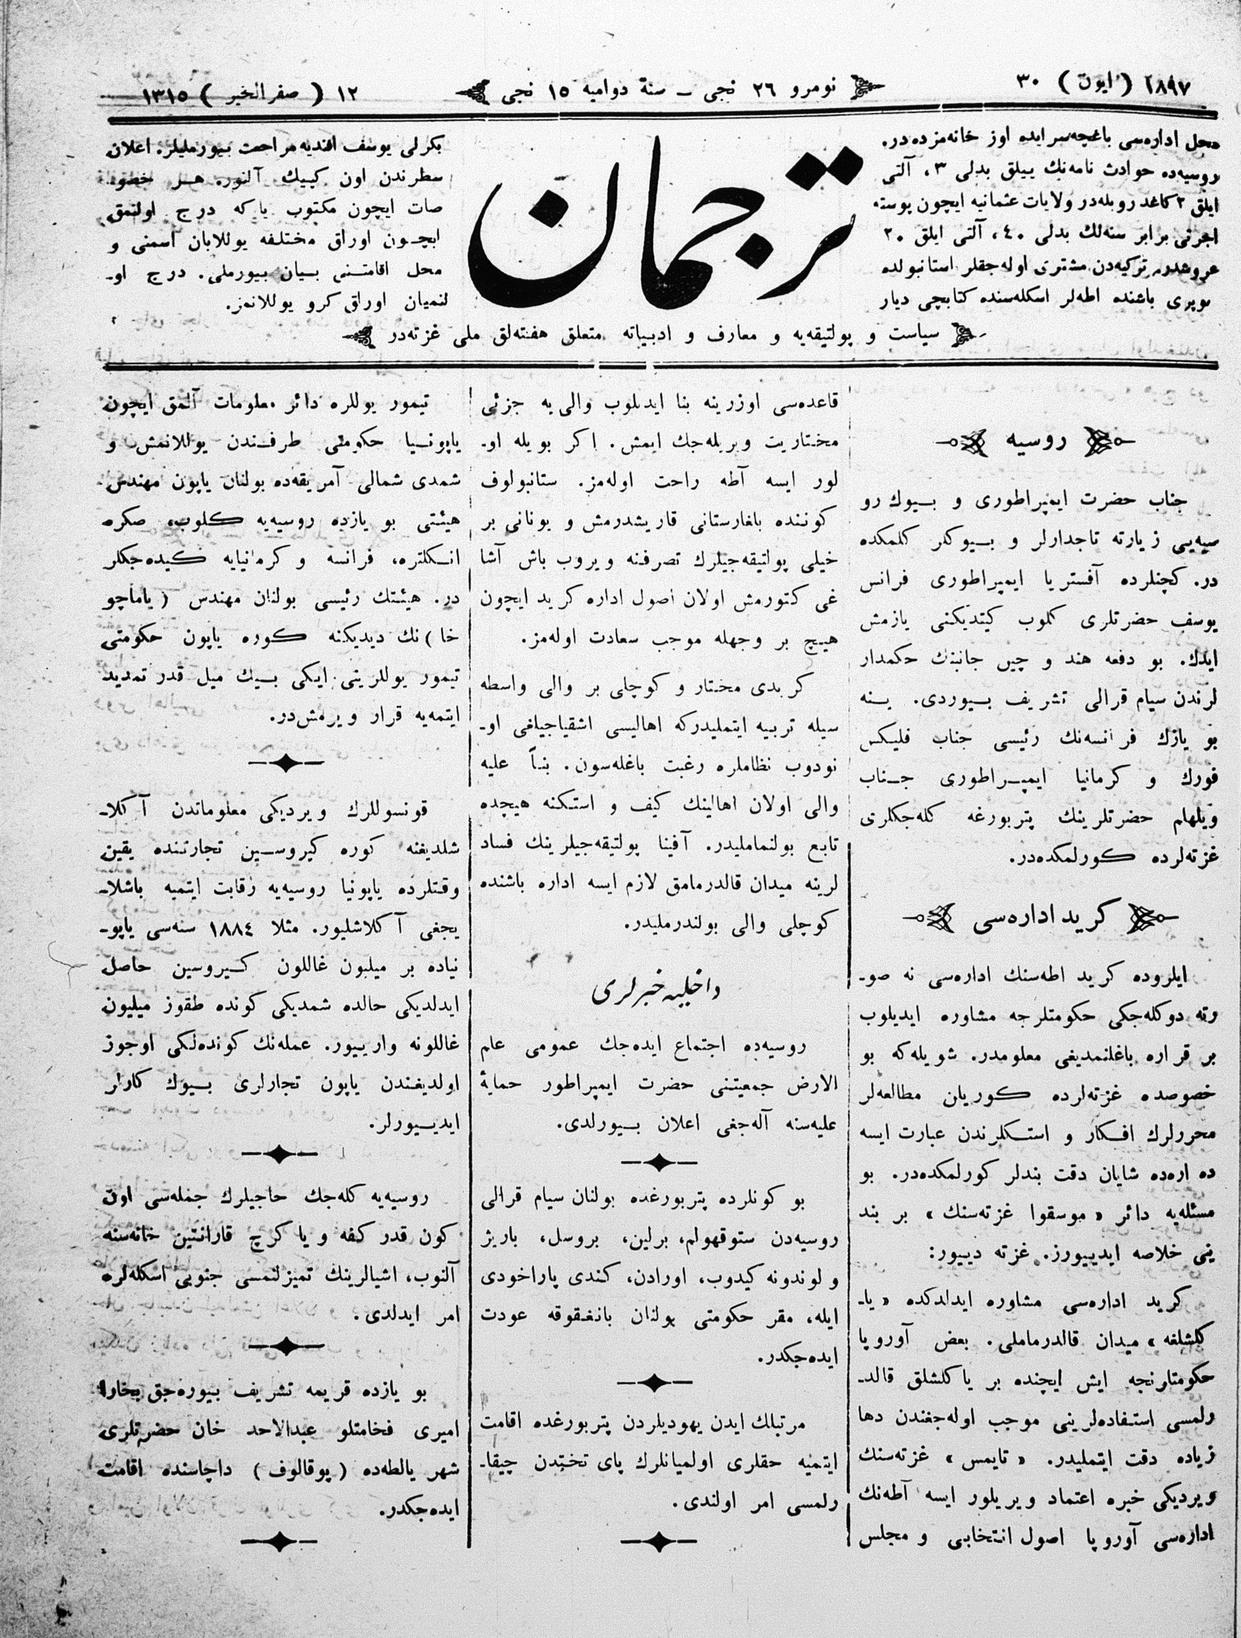 ١٨٩٧ (ايون) ٣٠
نومرو ٢٦ نجى ـ سنۀ دواميه ١٥ نجى
١٢ (صفر الخير) ١٣١٥
محل اداره‌سى باغچه‌سرايده اوز خانه‌مزده‌در.
روسيه‌ده حوادث نامه‌نك ييللق بدلى ٣، آلتى
ايلق ٢ كاغد روبله‌در ولايات عثمانيه ايچون پوسته
اجرتى برابر سنه‌لك بدلى ٤٠، آلتى ايلق ٢٠
غروشدر. تركيه‌دن مشترى اوله‌جقلر استانبولده
كوپرى باشنده اطه‌لر اسكله‌سنده كتابچى ديار
ترجمان
بكرلى يوسف افنديه مراجعت بيورمليلر. اعلان
سطرندن اون كپيك آلنور. هر خصوـ
صات ايچون مكتوب ياكه درج اولنمق
ايچون اوراق مختلفه يوللايان اسمنى و
محل اقامتنى بيان بيورملى. درج اوـ
لنميان اوراق كرو يوللانمز.
سياست و پولتيقه‌يه و معارف و ادبياته متعلق هفته‌لق ملى غزته‌در
روسيه
جناب حضرت ايمپراطورى و بيوك رو
سيه‌يى زيارته تاجدارلر و بيوكلر كلمكده
در. كچنلرده آفستريا ايمپراطورى فرانس
يوسف حضرتلرى كلوب كيتديكنى يازمش
ايدك. بو دفعه هند و چين جانبنك حكمدار
لرندن سيام قرالى تشريف بيوردى. ينه
بو يازك فرانسه‌نك رئيسى جناب فليكس
فورك و كرمانيا ايمپراطورى جناب
ويلهام حضرتلرينك پتربورغه كله‌جكلرى
غزته‌لرده كورلمكده‌در.
كريد اداره‌سى
ايلروده كريد اطه‌سنك اداره‌سى نه صوـ
رته دوكله‌جكى حكومتلرجه مشاوره ايديلوب
بر قراره باغلنمديغى معلومدر. شويله‌كه بو
خصوصده غزته‌لرده كوريان مطالعه‌لر
محررلرك افكار و استكلرندن عبارت ايسه
ده اره‌ده شايان دقت بندلر كورلمكده‌در. بو
مسئله‌يه دائر «موسقوا غزته‌سنك» بر بند
ينى خلاصه ايدييورز. غزته دييور:
كريد اداره‌سى مشاوره ايدلدكده «ياـ
كلشلغه» ميدان قالدرماملى. بعض آوروپا
حكومتلرنجه ايش ايچنده بر ياكلشلق قالدـ
رلمسى استفاده‌لرينى موجب اوله‌جغندن دها
زياده دقت ايتمليدر. «تايمس» غزته‌سنك
ويرديكى خبره اعتماد ويريلور ايسه آطه‌نك
اداره‌سى آوروپا اصول انتخابى و مجلس
قاعده‌سى اوزرينه بنا ايدلوب والى‌يه جزئى
مختاريت ويريله‌جك ايمش. اكر بويله اوـ
لور ايسه آطه راحت اوله‌مز. ستانبولوف
كوننده بلغارستانى قاريشدرمش و يونانى بر
خيلى پولتيقه‌جيلرك تصرفنه ويروب باش آشا
غى كتورمش اولان اصول اداره كريد ايچون
هيچ بر وجهله موجب سعادت اوله‌مز.
كريدى مختار و كوچلى بر والى واسطه
سيله تربيه ايتمليدركه اهاليسى اشقياجياغى اوـ
نودوب نظاملره رغبت باغله‌سون. بناً عليه
والى اولان اهالينك كيف و استكنه هيچده
تابع بولنمامليدر. آفينا پولتيقه‌جيلرينك فساد
لرينه ميدان قالدرمامق لازم ايسه اداره باشنده
كوچلى والى بولندرمليدر.
داخليه خبرلرى
روسيه‌ده اجتماع ايده‌جك عمومى علم
الارض جمعيتنى حضرت ايمپراطور حمايۀ
عليه‌سنه آله‌جغى اعلان بيورلدى.
بو كونلرده پتربورغده بولنان سيام قرالى
روسيه‌دن ستوقهولم، برلين، بروسل، باريژ
و لوندونه كيدوب، اورادن، كندى پاراخودى
ايله، مقر حكومتى بولنان بانغقوقه عودت
ايده‌جكدر.
مرتبلك ايدن يهوديلردن پتربورغده اقامت
ايتميه حقلرى اولميانلرك پاى تختدن چيقاـ
رلمسى امر اولندى.
تيمور يوللره دائر معلومات آلمق ايچون
ياپونيا حكومتى طرفندن يوللانمش و
شمدى شمالى آمريقه‌ده بولنان ياپون مهندس
هيئتى بو يازده روسيه‌يه كلوب، صكره
انكلتره، فرانسه و كرمانيايه كيده‌جكلر
در. هيئتك رئيسى بولنان مهندس (ياماچو
خا) نك ديديكنه كوره ياپون حكومتى
تيمور يوللرينى ايكى بيك ميل قدر تمديد
ايتمه‌يه قرار ويرمش‌در.
قونسوللرك ويرديكى معلوماتدن آكلاـ
شلديغنه كوره كيروسين تجارتنده يقين
وقتلرده ياپونيا روسيه‌يه رقابت ايتميه باشلاـ
يجغى آكلاشليور. مثلا ١٨٨٤ سنه‌سى ياپوـ
نياده بر ميليون غاللون كيروسين حاصل
ايدلديكى حالده شمديكى كونده طقوز ميليون
غاللونه وارييور. عمله‌نك كونده‌لكى اوجوز
اولديغندن ياپون تجارلرى بيوك كارلر
ايدييورلر.
روسيه‌يه كله‌جك حاجيلرك جمله‌سى اون
كون قدر كفه و يا كرچ قارانتين خانه‌سنه
آلنوب، اشيالرينك تميزلنمسى جنوبى اسكله‌لره
امر ايدلدى.
بو يازده قريمه تشريف بيوره‌جق بخارا
اميرى فخامتلو عبدالاحد خان حضرتلرى
شهر يالطه‌ده (پوقالوف) داچاسنده اقامت
ايده‌جكدر.